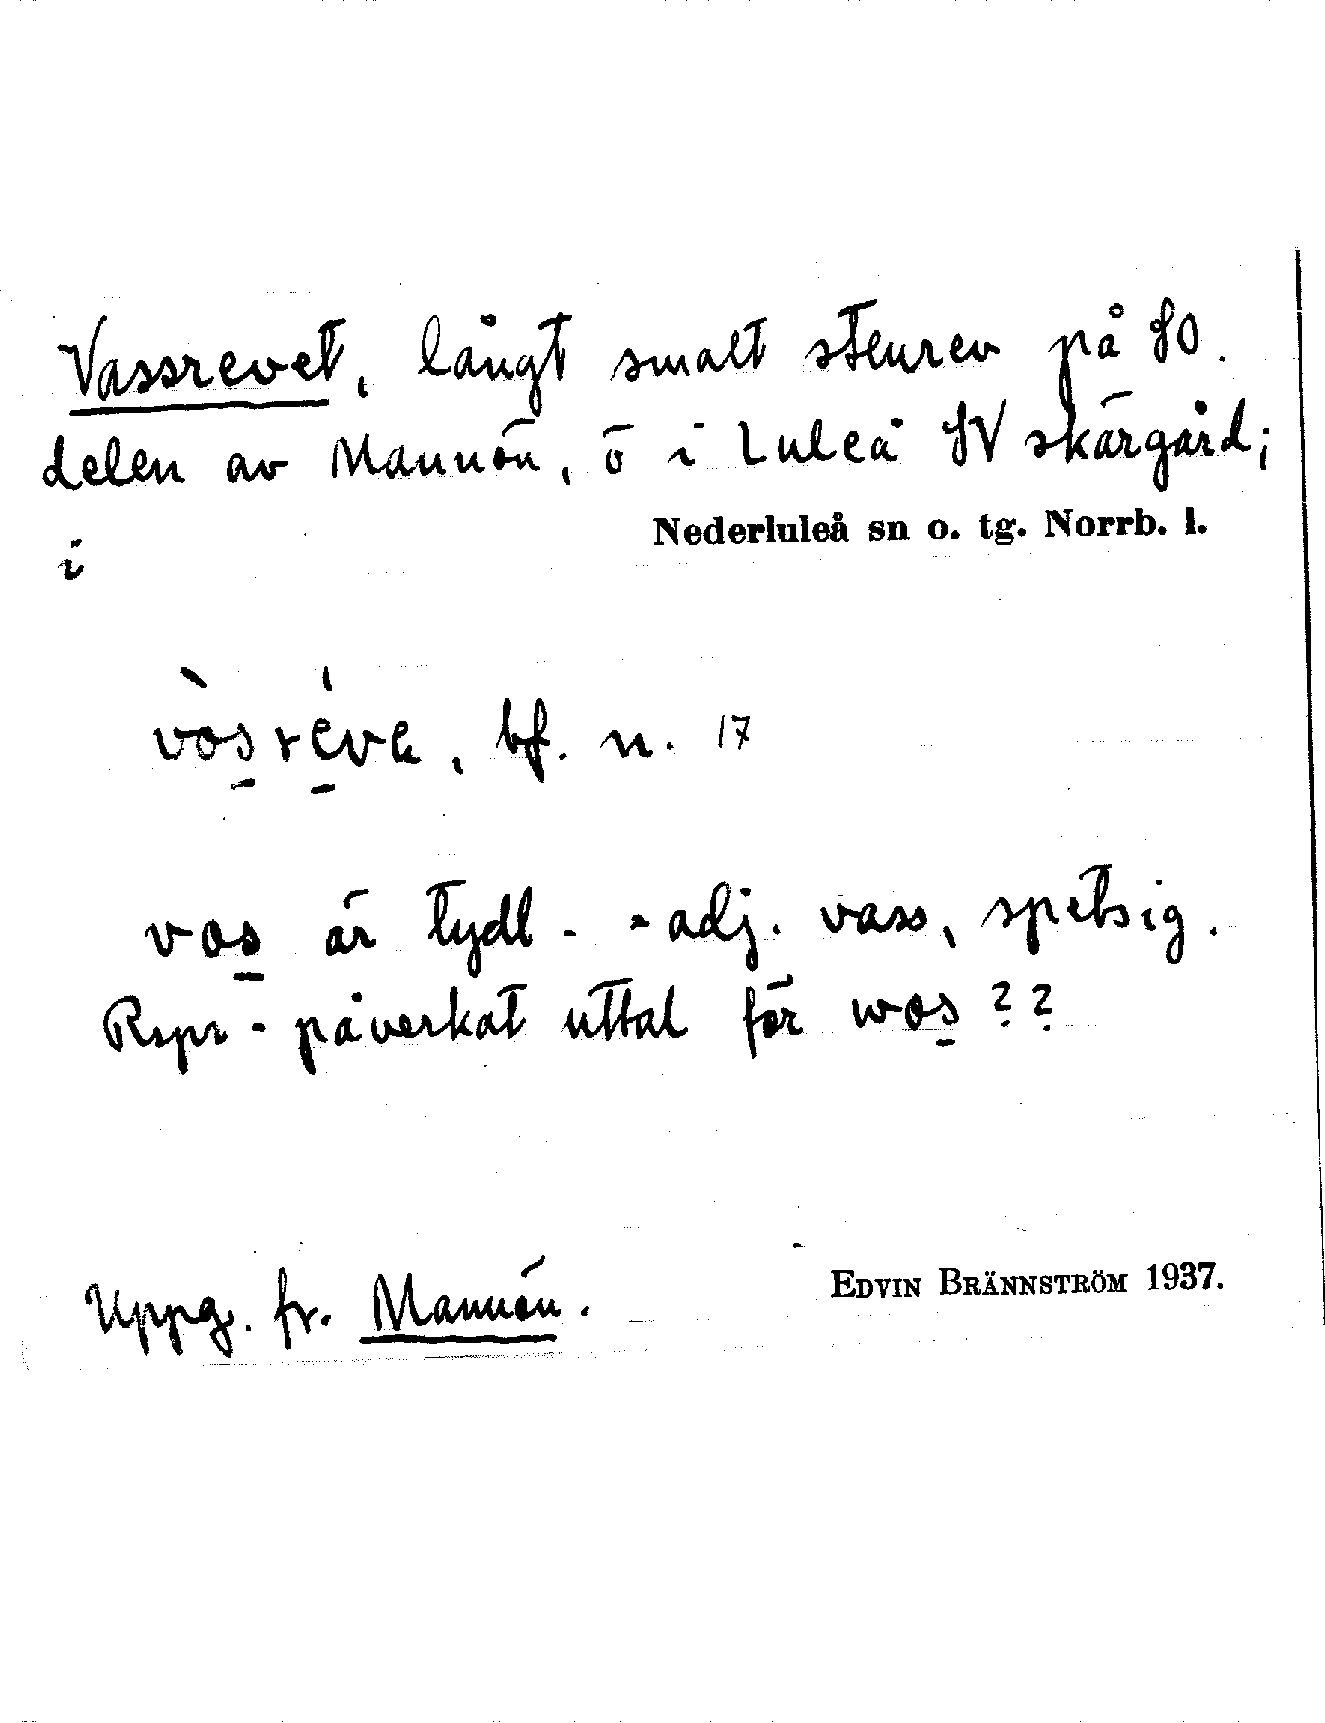 Vassrevet, långt smalt stenrev på SO.
delen av Mannön, ö i Luleå SV skärgård;
i Nederluleå sn o. tg. Norrb. l.
vòsréva, bf. n. 17
vos är tydl. = adj. vass, spetsig.
Rspr-påverkat uttal för wos??
Uppg. fr. Mannön. EDVIN BRÄNNSTRÖM 1937.